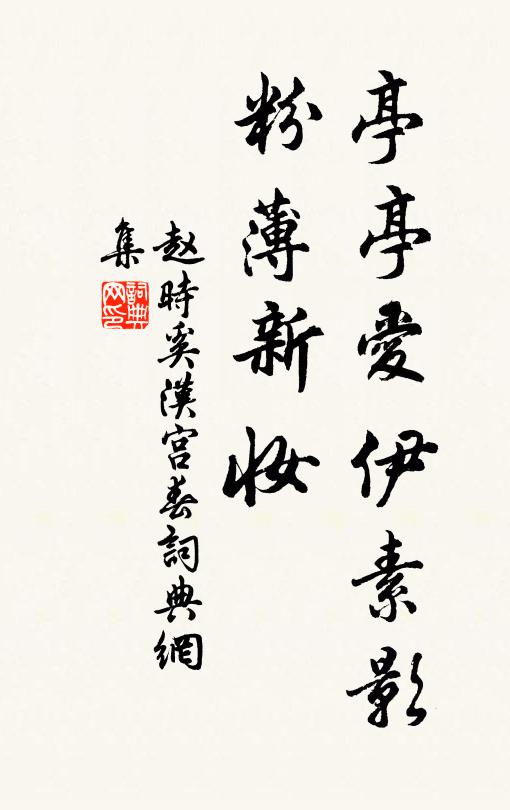 亭亭愛伊素影
粉薄新妝
赵時奚漢宮春詞典網
集
詞典
网印